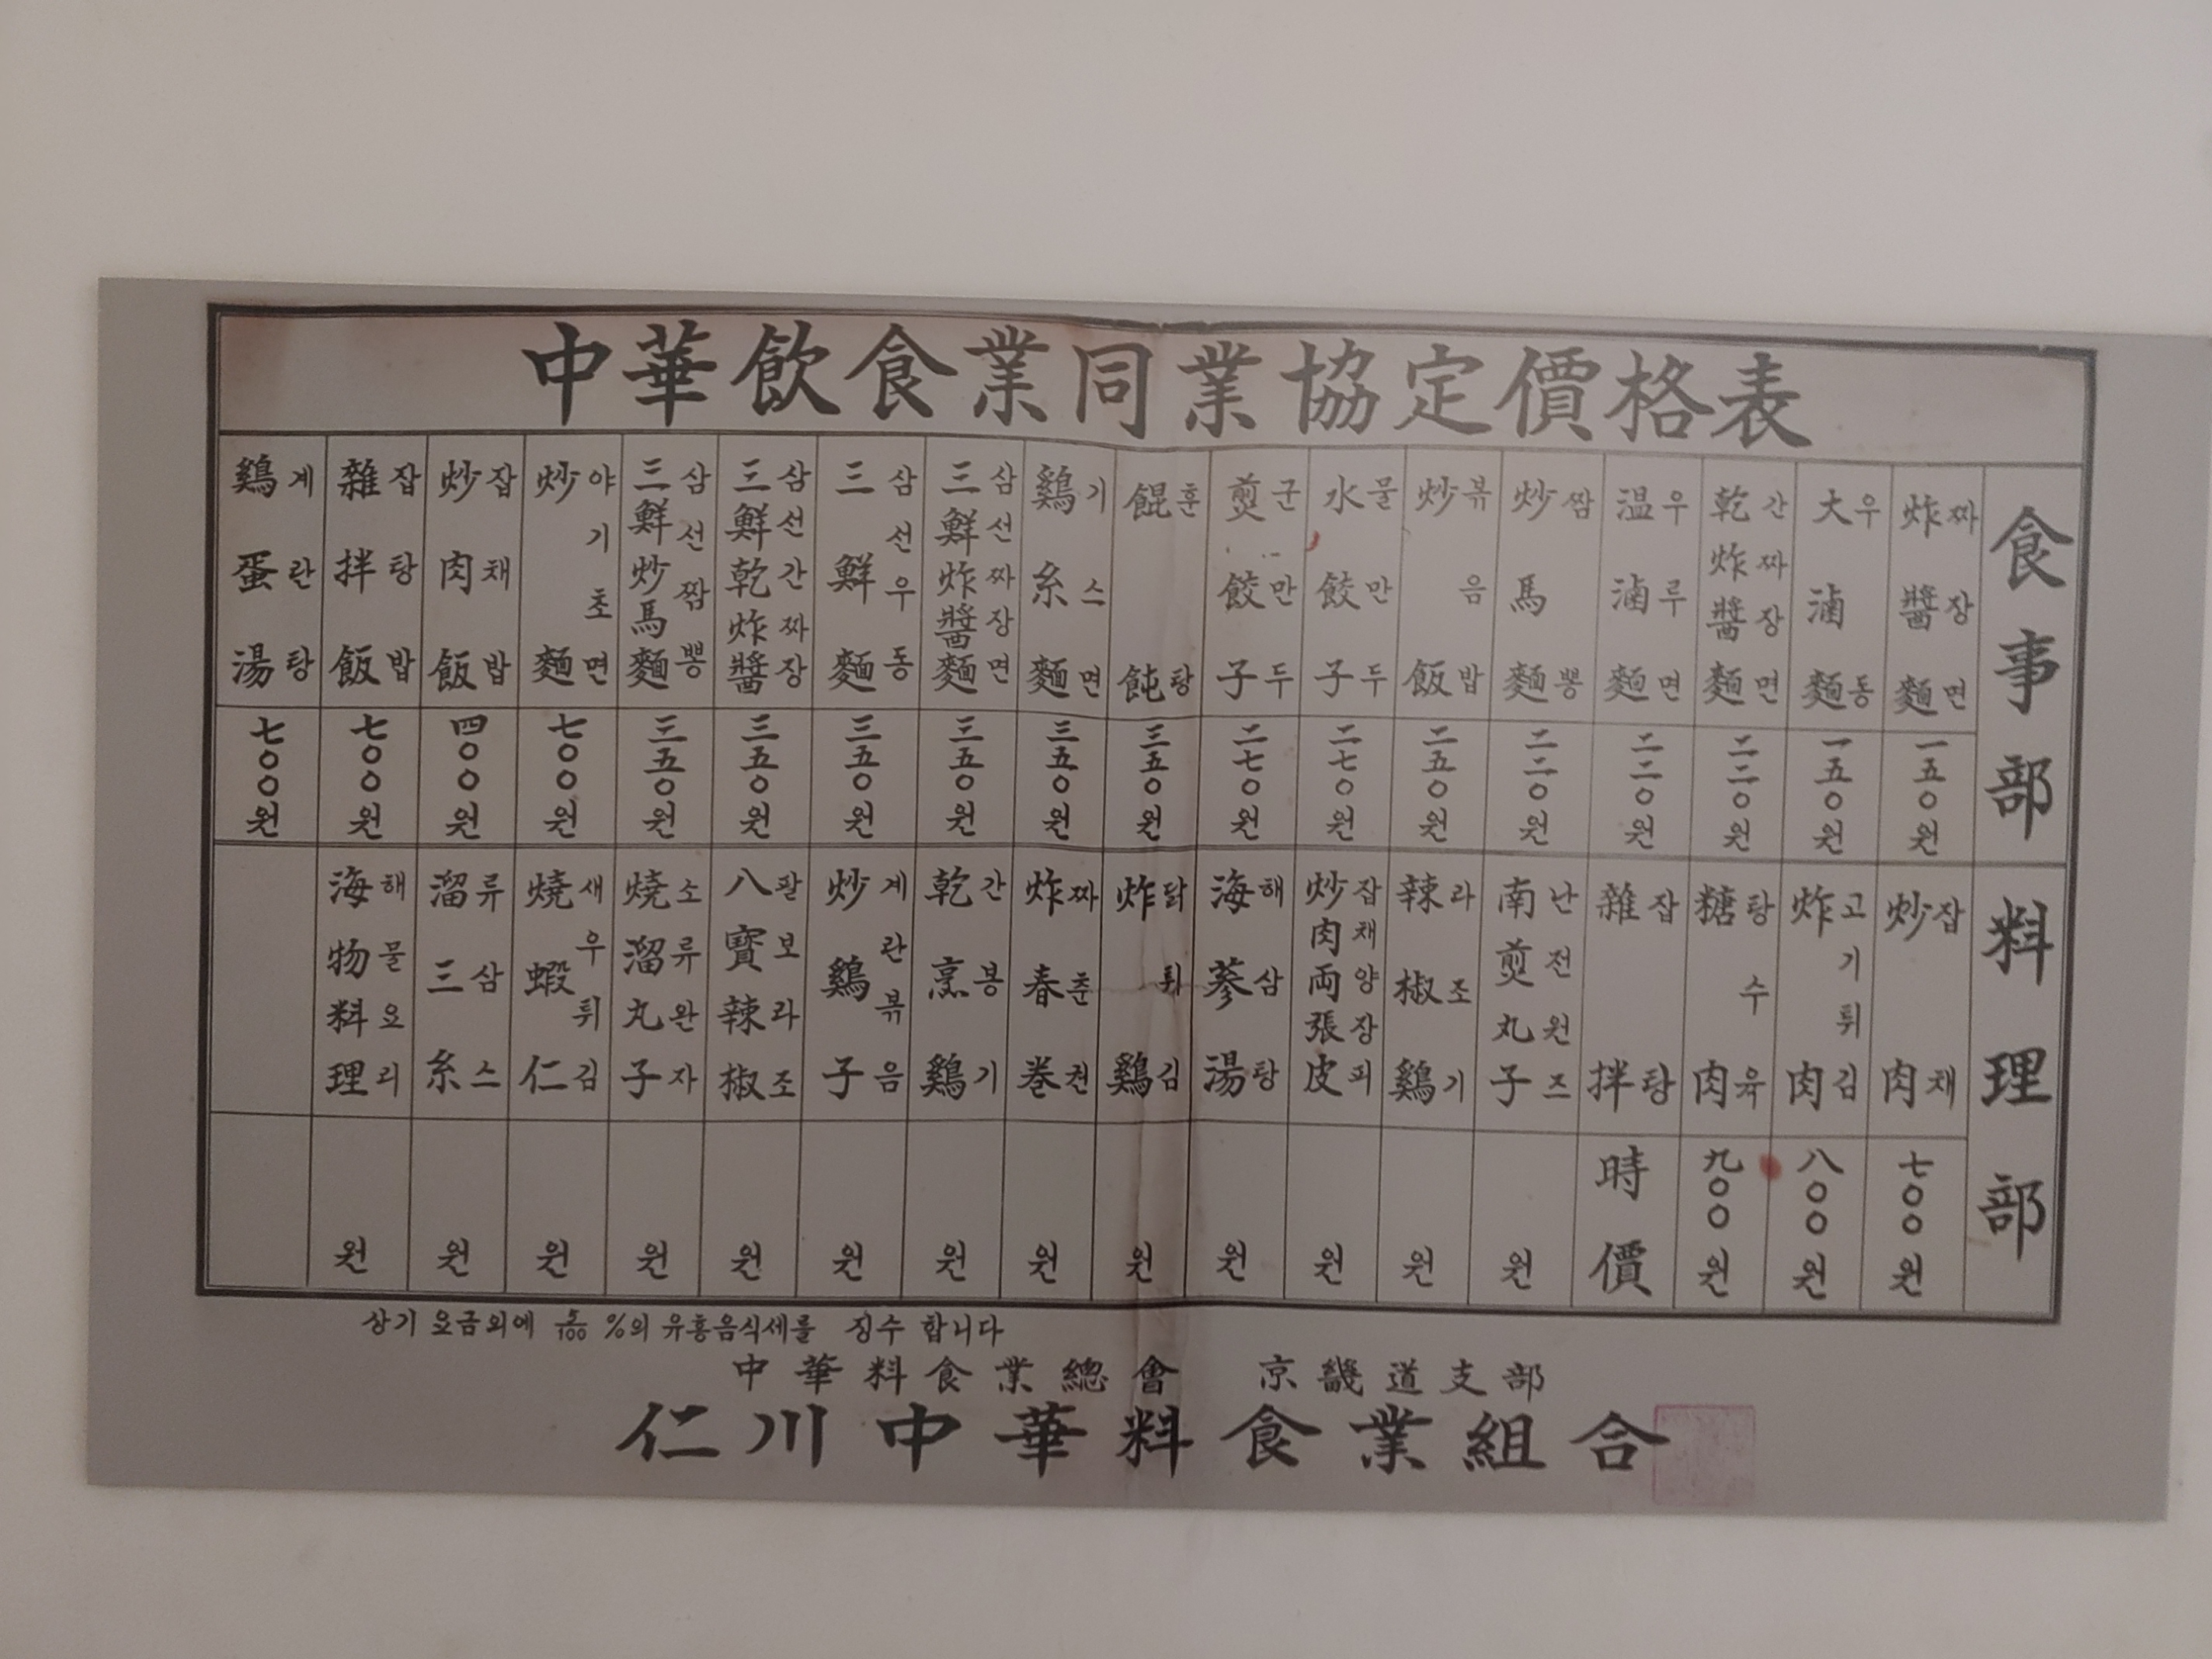 中華飲食業同業協定價格表
食事部
炸醬麵 짜장면
一五〇원
大滷麵 우동
一五〇원
乾炸醬麵 간짜장면
二二〇원
温滷麵 우루면
二二〇원
炒馬麵 짬뽕
二二〇원
炒飯 볶음밥
二五〇원
水餃子 물만두
二七〇원
煎餃子 군만두
二七〇원
餛飩 훈탕
三五〇원
鷄糸麵 기스면
三五〇원
三鮮炸醬麵 삼선짜장면
三五〇원
三鮮麵 삼선우동
三五〇원
三鮮乾炸醬 삼선간짜장
三五〇원
三鮮炒馬麵 삼선짬뽕
三五〇원
炒麵 야기초면
七〇〇원
炒肉飯 잡채밥
四〇〇원
雜拌飯 잡탕밥
七〇〇원
鷄蛋湯 계란탕
七〇〇원
料理部
炒肉 잡채
七〇〇원
炸肉 고기튀김
八〇〇원
糖肉 탕수육
九〇〇원
雜拌 잡탕
時價
南煎丸子 난전원즈
원
辣椒鷄 라조기
원
炒肉両張皮 잡채양장피
원
海蔘湯 해삼탕
원
炸鷄 닭튀김
원
炸春巻 짜춘권
원
乾烹鷄 간봉기
원
炒鷄子 계란볶음
원
八寶辣椒 팔보라조
원
燒溜丸子 소류완자
원
燒蝦仁 새우튀김
원
溜三糸 류삼스
원
海物料理 해물요리
원
상기 요금외에 5/100 %의 유흥음식세를 징수 합니다
中華料食業總會 京畿道支部
仁川中華料食業組合